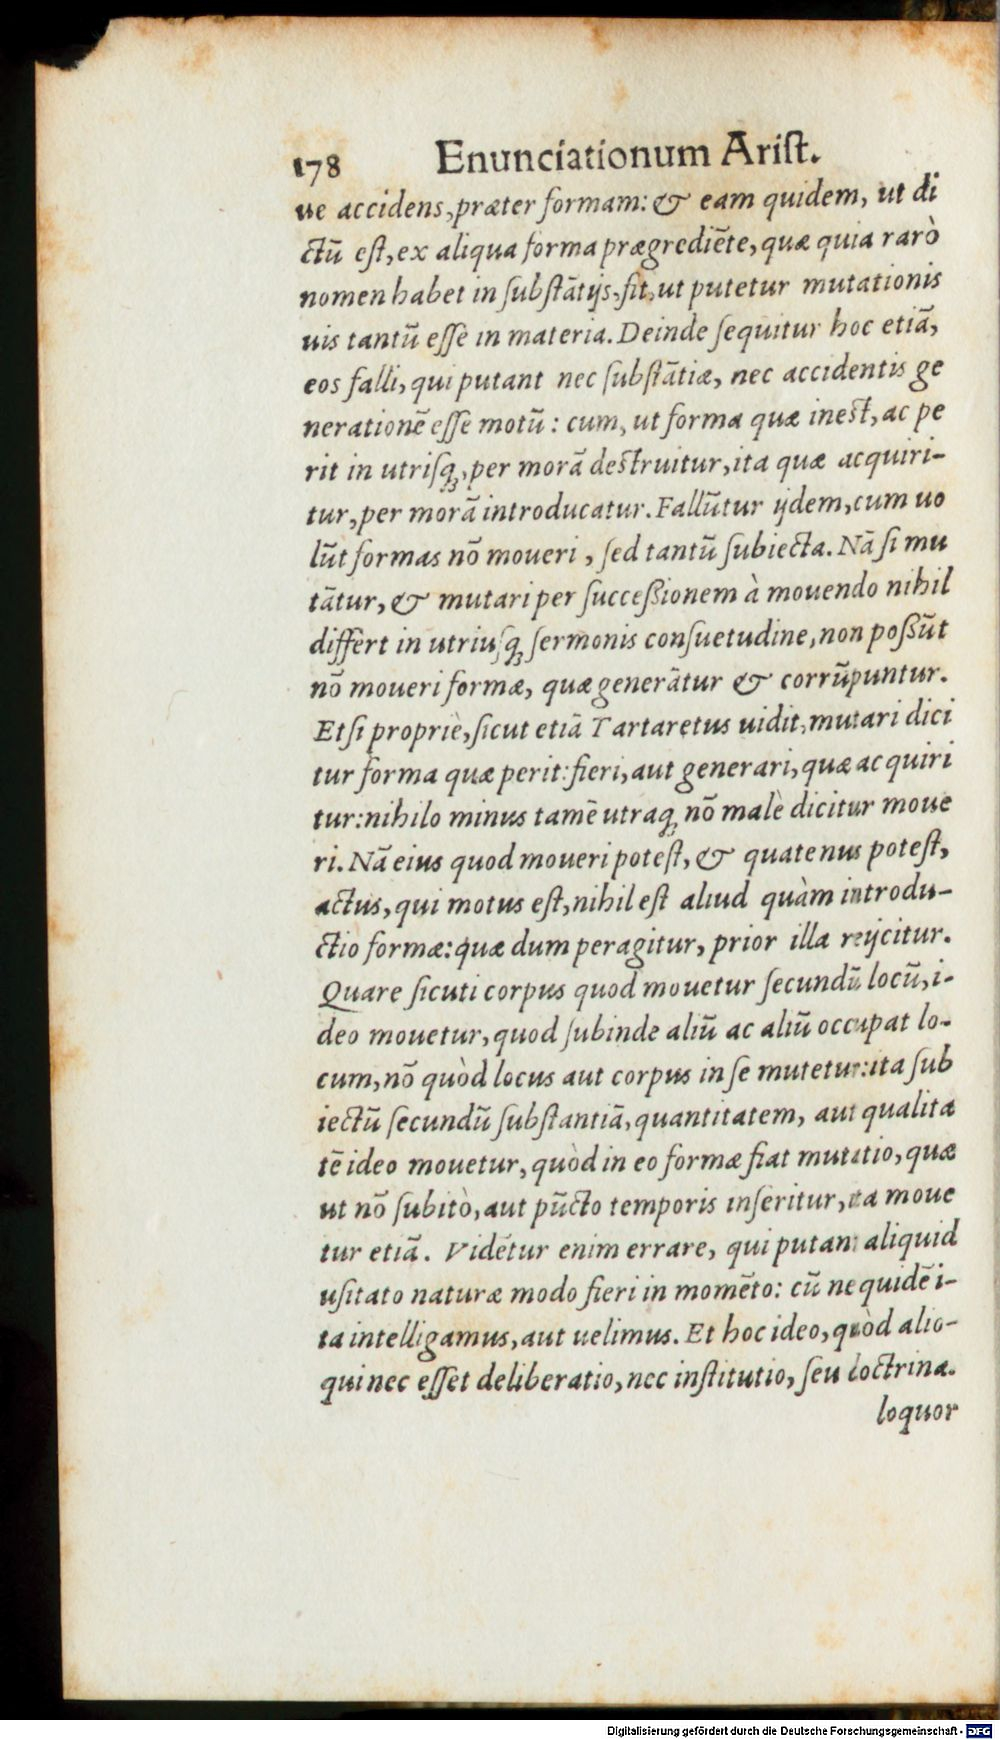 178 Enunciationum Ariſt.
ue accidens, præter formam: & eam quidem, ut di
ctū eſt, ex aliqua forma prægrediēte, quæ quia rarò
nomen habet in ſubſtātijs, fit, ut putetur mutationis
uis tantū eſſe in materia. Deinde ſequitur hoc etiā,
eos falli, qui putant nec ſubſtātiæ, nec accidentis ge
nerationē eſſe motū: cum, ut forma quæ ineſt, ac pe
rit in utriſq;, per morā deſtruitur, ita quæ acquiri-
tur, per morā introducatur. Fallūtur ijdem, cum uo
lūt formas nō moueri, ſed tantū ſubiecta. Nā ſi mu
tātur, & mutari per ſucceßionem à mouendo nihil
differt in utriuſq; ſermonis conſuetudine, non poßūt
nō moueri formæ, quæ generātur & corrūpuntur.
Etſi propriè, ſicut etiā Tartaretus uidit, mutari dici
tur forma quæ perit: fieri, aut generari, quæ acquiri
tur: nihilo minus tamē utraq; nō malè dicitur moue
ri. Nā eius quod moueri poteſt, & quatenus poteſt,
actus, qui motus eſt, nihil eſt aliud quàm introdu-
ctio formæ: quæ dum peragitur, prior illa reijcitur.
Quare ſicuti corpus quod mouetur ſecundū locū, i-
deo mouetur, quod ſubinde aliū ac aliū occupat lo-
cum, nō quòd locus aut corpus in ſe mutetur: ita ſub
iectū ſecundū ſubſtantiā, quantitatem, aut qualita
tē ideo mouetur, quòd in eo formæ fiat mutatio, quæ
ut nō ſubitò, aut pūcto temporis inſeritur, ita moue
tur etiā. Vidētur enim errare, qui putant aliquid
uſitato naturæ modo fieri in momēto: cū ne quidē i-
ta intelligamus, aut uelimus. Et hoc ideo, quòd alio-
qui nec eſſet deliberatio, nec inſtitutio, ſeu doctrina.
loquor
Digitalisierung gefördert durch die Deutsche Forschungsgemeinschaft - DFG